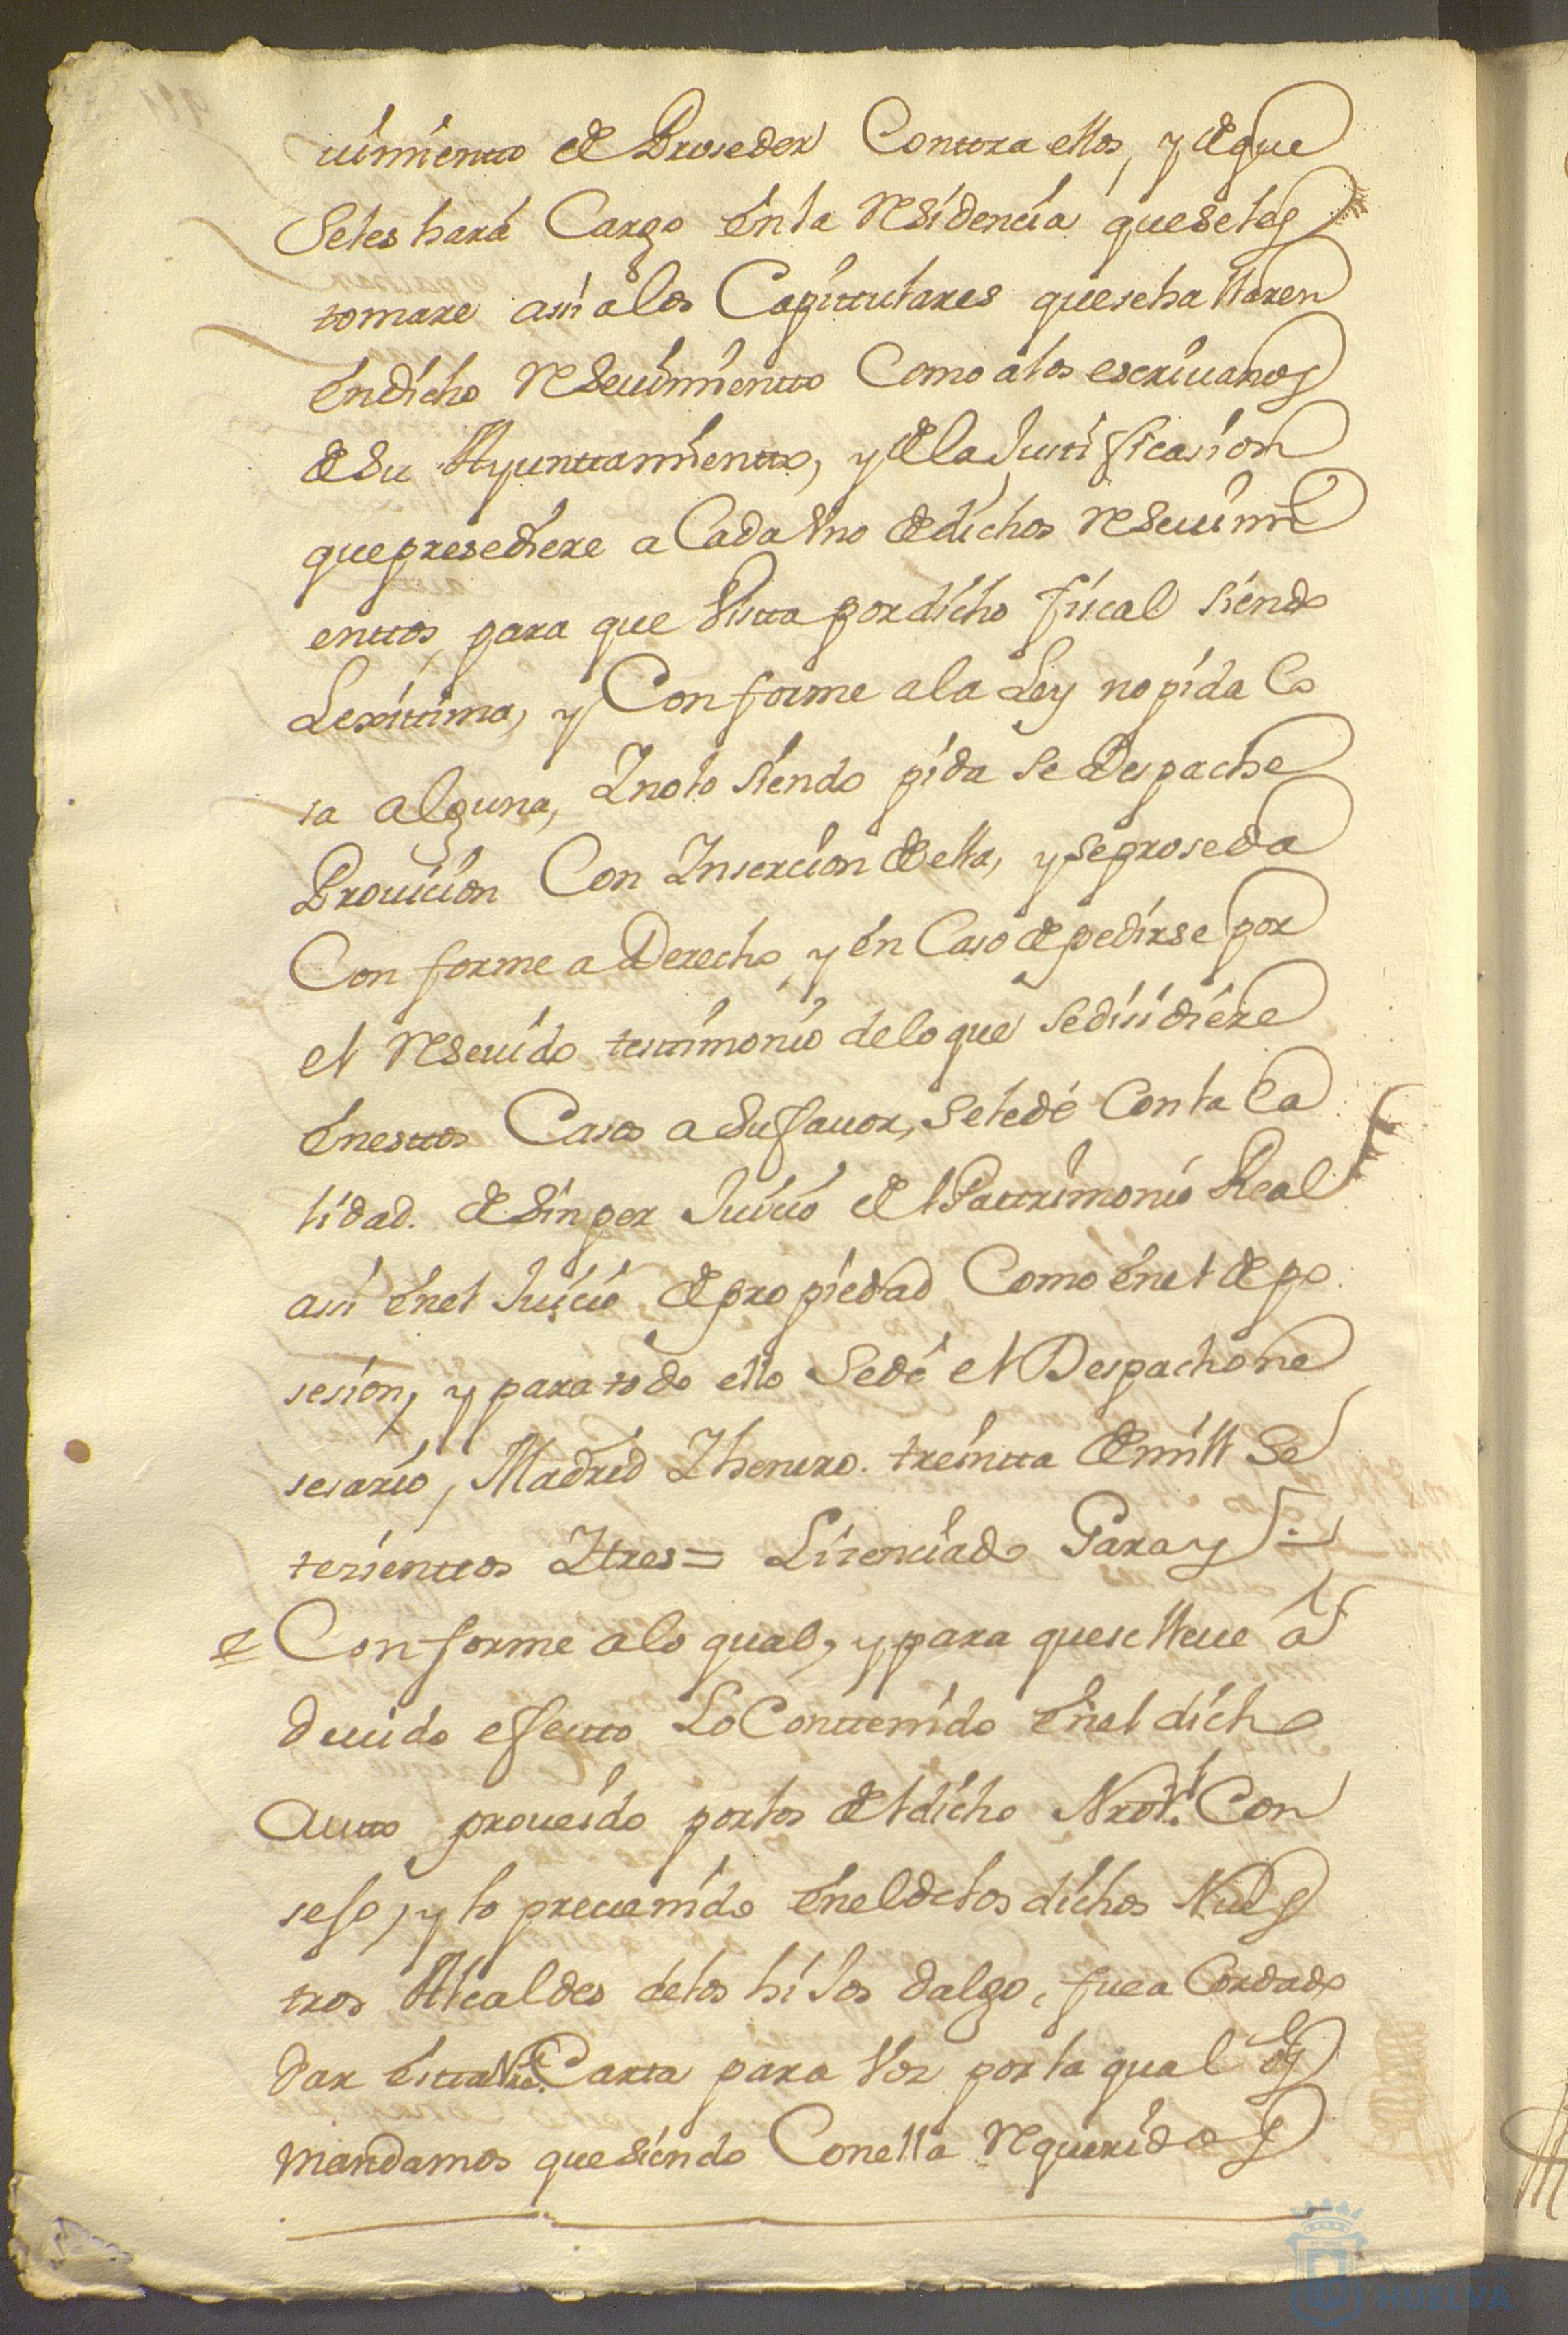 uimientto de Proseder Conttra ellos, y de que
Seles hará Cargo en la residencia que seles
tomare asi a los Capittulares que se hallaren
en dicho reseuimientto Como a los escriuanos
de su Ayunttamientto, y de la Justificasion
que presediere a Cada Vno de dichos reseuimi
enttos, para que Vistta por dicho fiscal siendo
Lexittima, y Conforme a la Ley no pida Co
sa alguna, Y no lo siendo pida se Despache
Prouicion Con Ynsercion de ella, y se proseda
Conforme a Derecho, y en Caso de pedirse por
el reseuido testtimonio de lo que se disidiere
en esttos Casos a su fauor, se le dé Con la Ca
lidad. de sin per Juicio de el Pattrimonio Real
asi en el Juicio de propiedad Como en el de po
sesion, y para todo ello se dé el Despacho ne
sesario, Madrid Y henero. treintta de mill se
tesienttos Y tres = Lisenciado Paray =
Conforme a lo qual, y para que se lleue a
deuido efectto Lo Conttenido en el dicho
Autto proueido por los de el dicho Nro. Con
sejo, y lo preuenido en el de los dichos Nues
tros Alcaldes de los hiJos dalgo, fue a Cordado
dar estta Nra. Carta para Vos por la qual os
mandamos que siendo Con ella requeridos
HUELVA